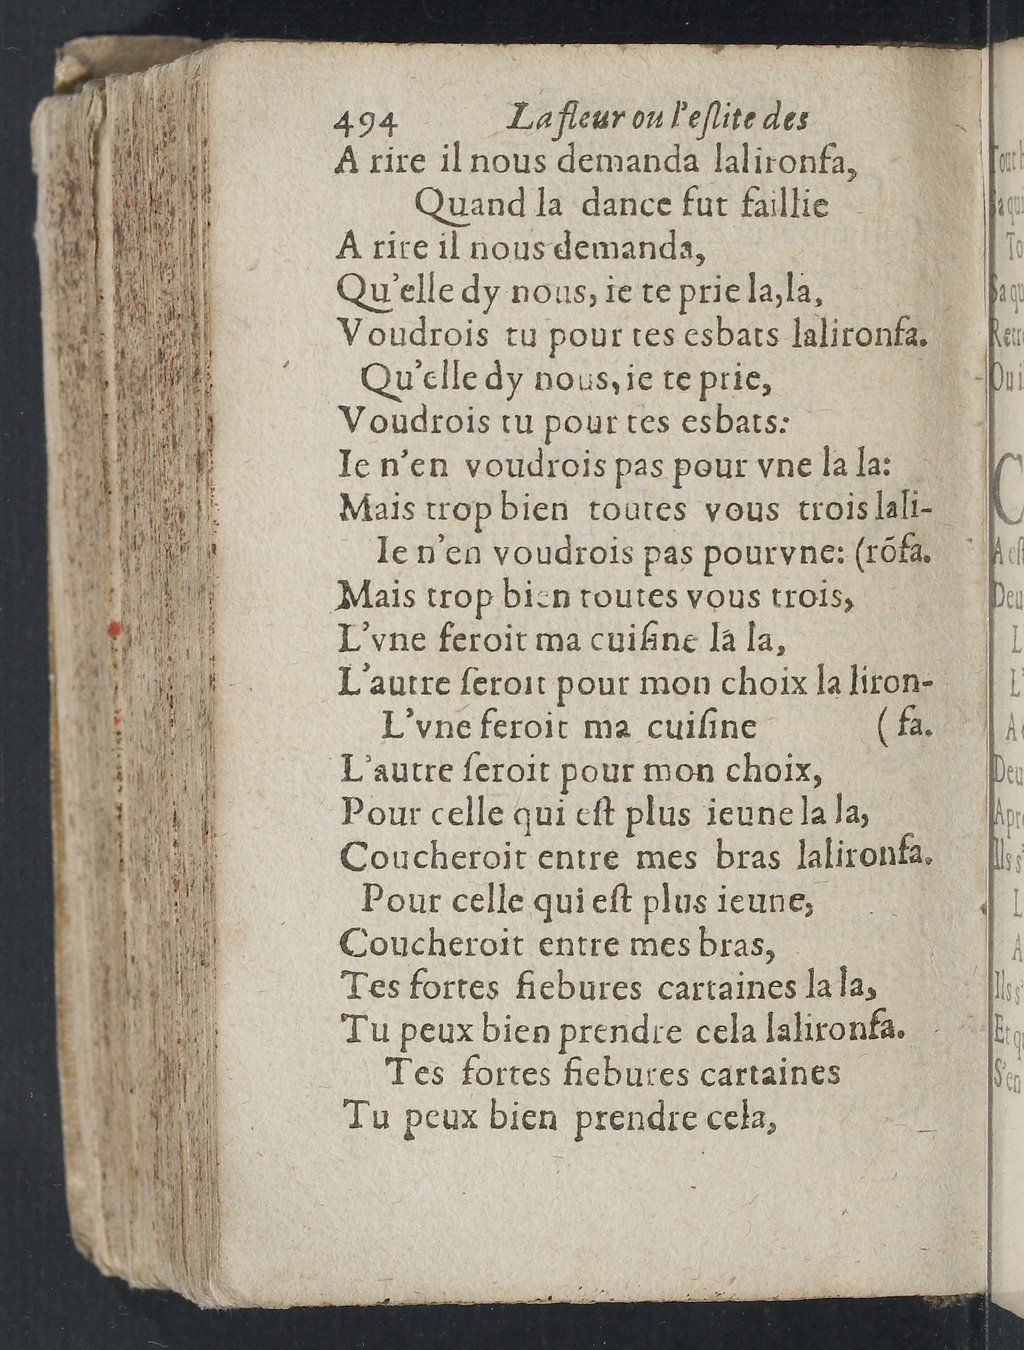 494 La fleur ou l'eſlite des
A rire il nous demanda lalironfa,
Quand la dance fut faillie
A rire il nous demanda,
Qu'elle dy nous, ie te prie la, la,
Voudrois tu pour tes esbats lalironfa.
Qu'elle dy nous, ie te prie,
Voudrois tu pour tes esbats:
Ie n'en voudrois pas pour vne la la:
Mais trop bien toutes vous trois lali-
Ie n'en voudrois pas pour vne: (rõfa.
Mais trop bien toutes vous trois,
L'vne feroit ma cuiſine la la,
L'autre ſeroit pour mon choix la liron-
L'vne feroit ma cuiſine (fa.
L'autre ſeroit pour mon choix,
Pour celle qui eſt plus ieune la la,
Coucheroit entre mes bras lalironfa.
Pour celle qui eſt plus ieune,
Coucheroit entre mes bras,
Tes fortes fiebures cartaines la la,
Tu peux bien prendre cela lalironfa.
Tes fortes fiebures cartaines
Tu peux bien prendre cela,